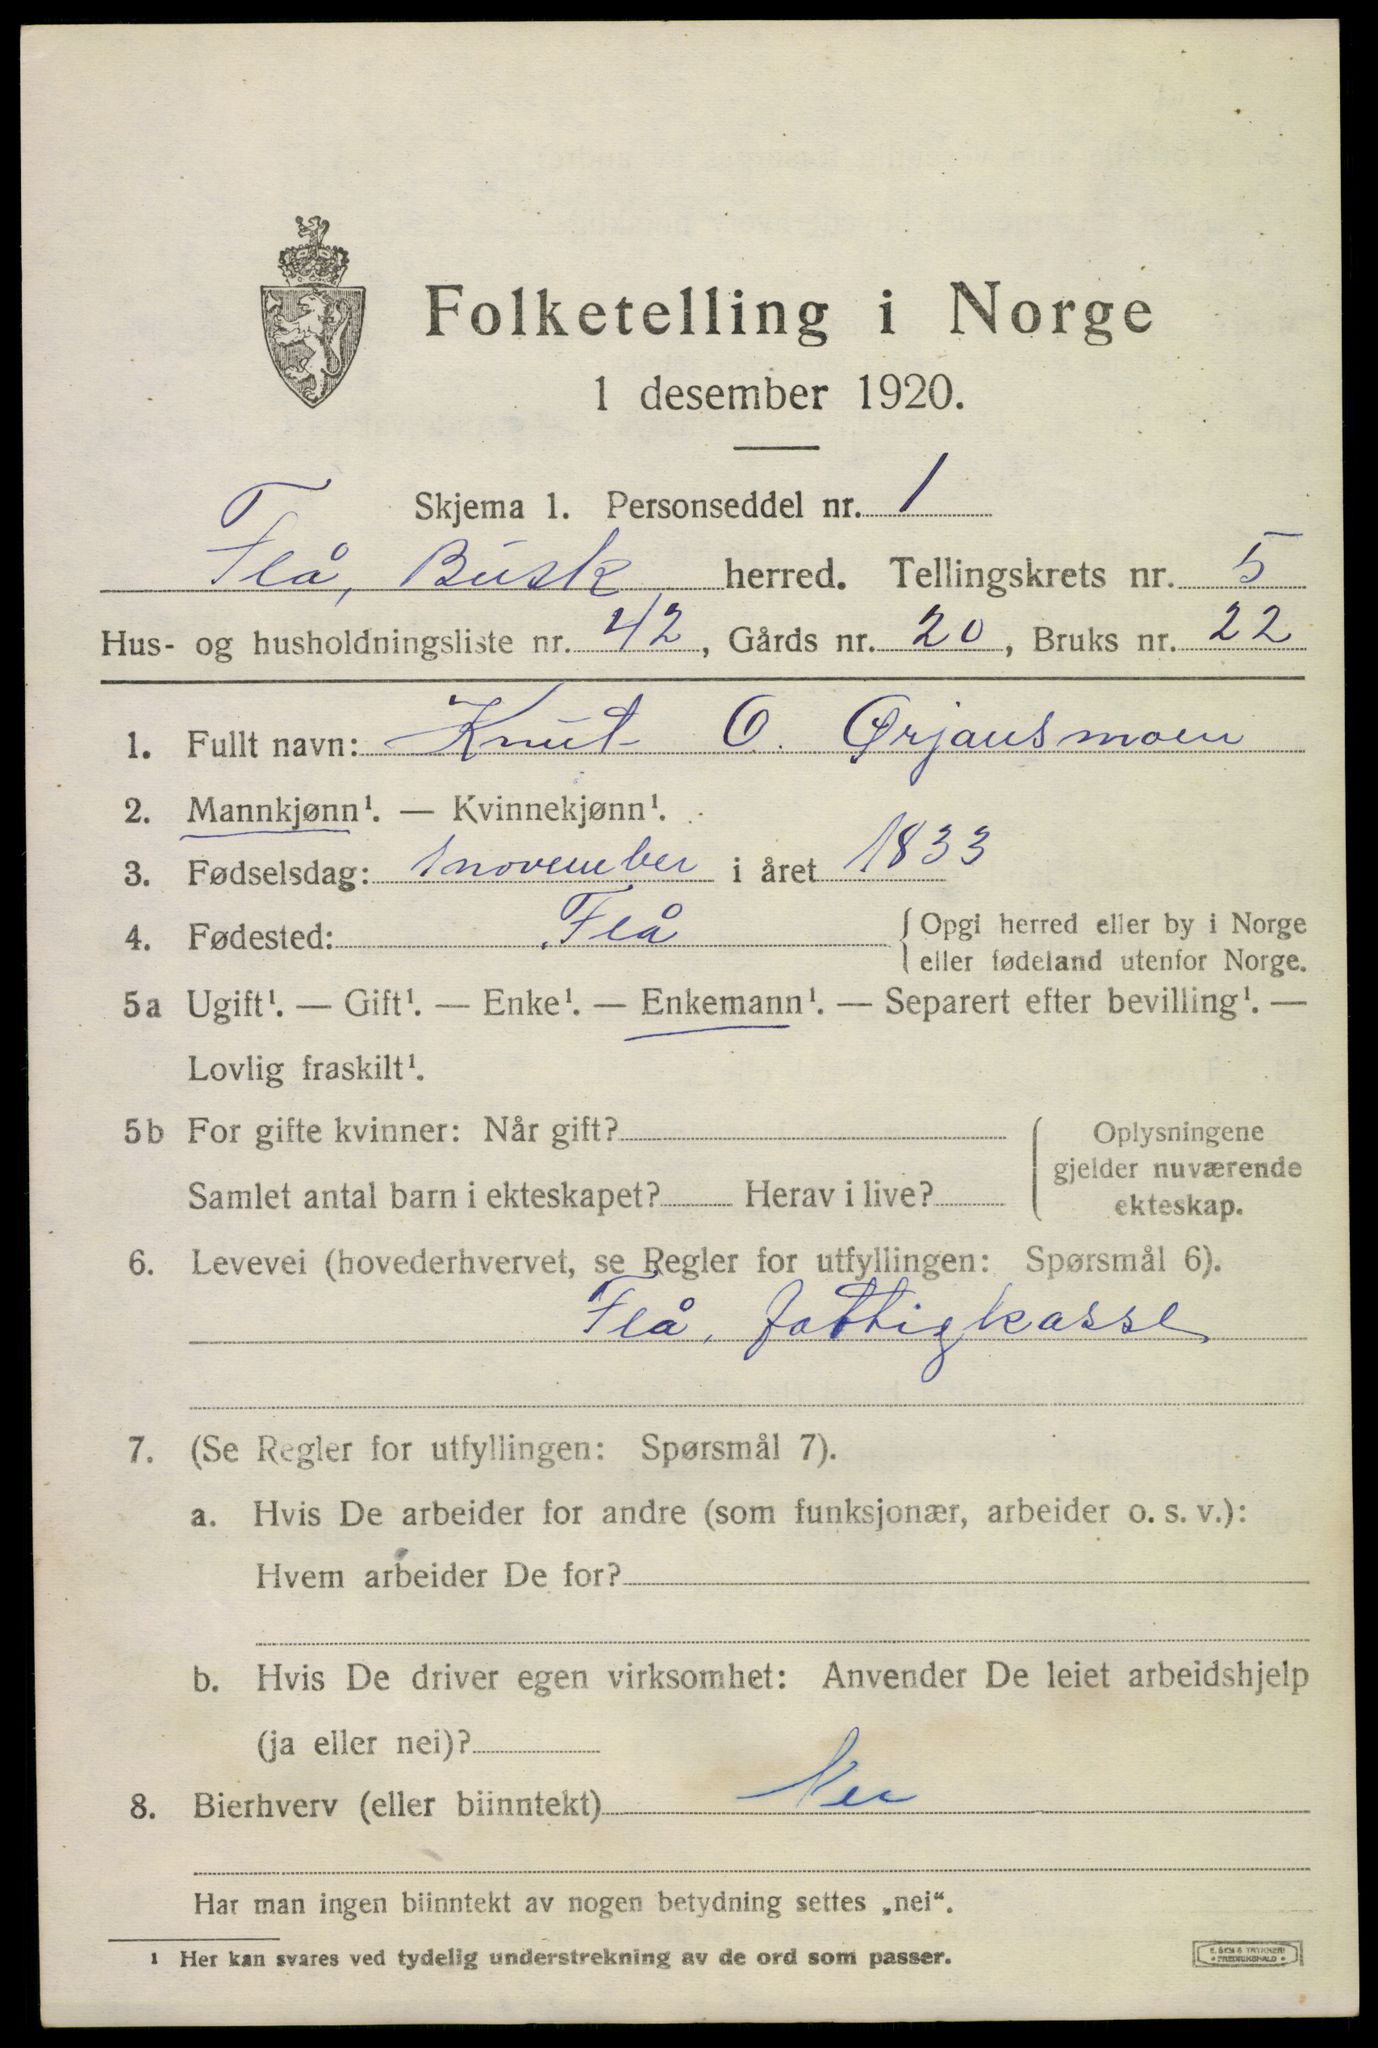 Folketelling i Norge
1 desember 1920.
Skjema 1. Personseddel nr. 1
Flå, Busk herred. Tellingskrets nr. 5
Hus- og husholdningsliste nr. 42, Gårds nr. 20, Bruks nr. 22
1. Fullt navn: Knut O. Ørjansmoen
2. Mannkjønn¹. — Kvinnekjønn¹.
3. Fødselsdag: 1 november i året 1833
4. Fødested: Flå { Opgi herred eller by i Norge
eller fødeland utenfor Norge.
5a Ugift¹. — Gift¹. — Enke¹. — Enkemann¹. — Separert efter bevilling¹. —
Lovlig fraskilt¹.
5b For gifte kvinner: Når gift? { Oplysningene
gjelder nuværende
Samlet antal barn i ekteskapet? Herav i live? ekteskap.
6. Levevei (hovederhvervet, se Regler for utfyllingen: Spørsmål 6).
Flå, fattigkasse
7. (Se Regler for utfyllingen: Spørsmål 7).
a. Hvis De arbeider for andre (som funksjonær, arbeider o. s. v.):
Hvem arbeider De for?
b. Hvis De driver egen virksomhet: Anvender De leiet arbeidshjelp
(ja eller nei)?
8. Bierhverv (eller biinntekt) Nei
Har man ingen biinntekt av nogen betydning settes „nei“.
¹ Her kan svares ved tydelig understrekning av de ord som passer.